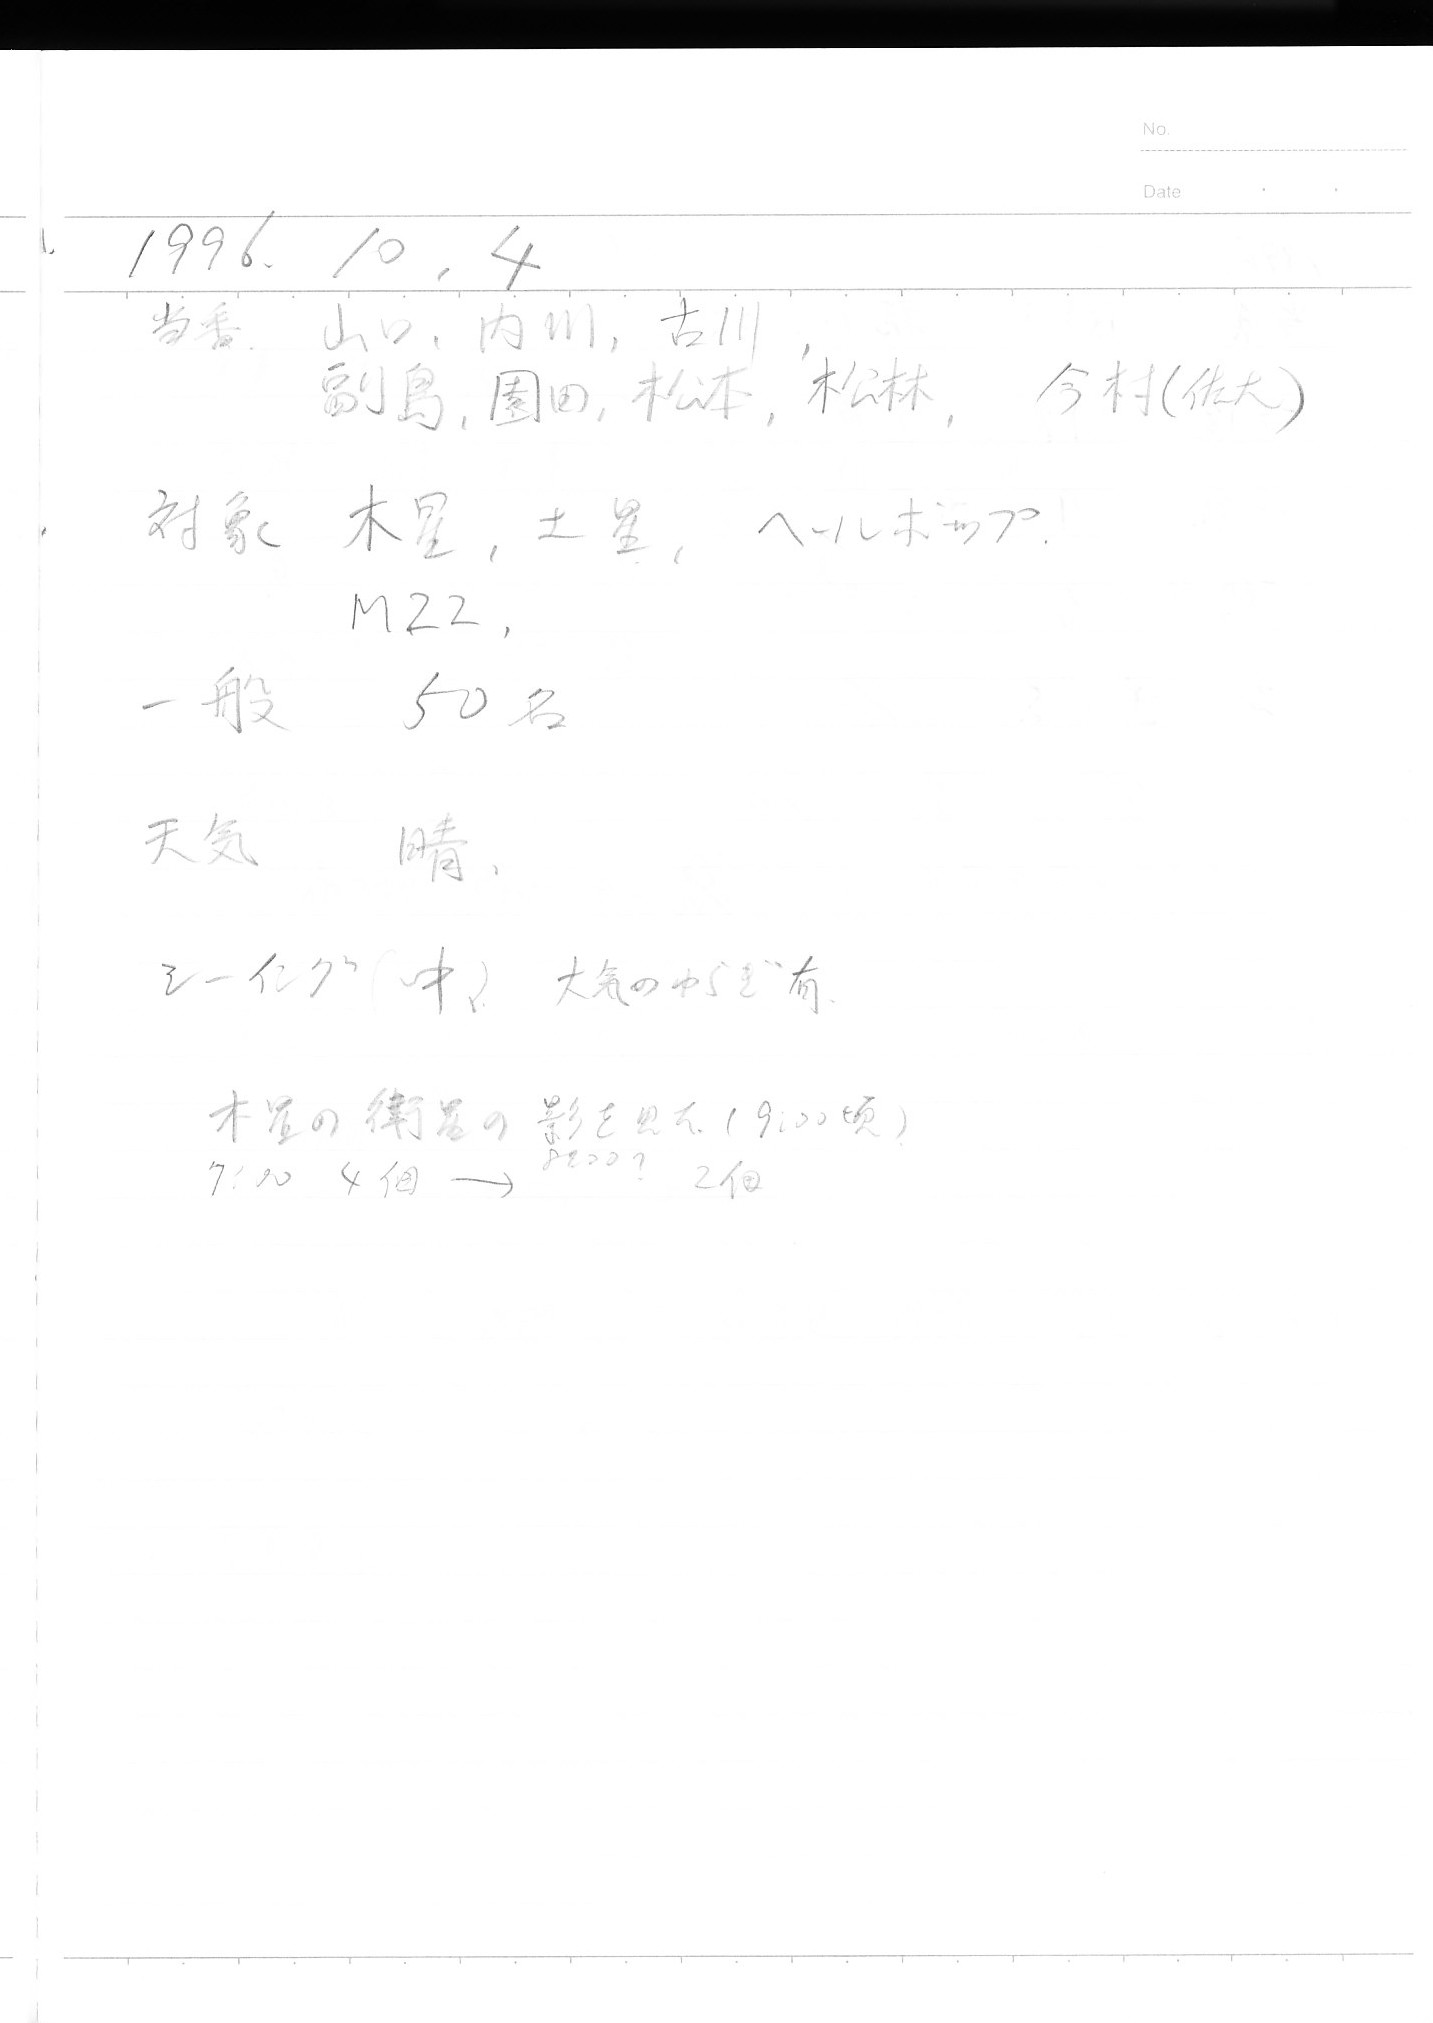 No.
Date
1996. 10. 4
当番. 山口, 内川, 古川,
副島, 園田, 松本, 松林, 今村(佐大)
対象 木星, 土星, ヘールボップ.
M22,
一般 50名
天気 晴.
シーイング(中) 大気のゆらぎ有.
木星の衛星の影を見た(9:00頃)
8:00?
7:00 4個 → 2個